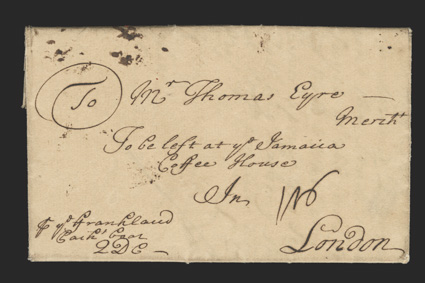 To Mr Thomas Eyre —
Mercht
To be left at ye Jamaica
Coffee House
In
London
ye Frankland
QDC